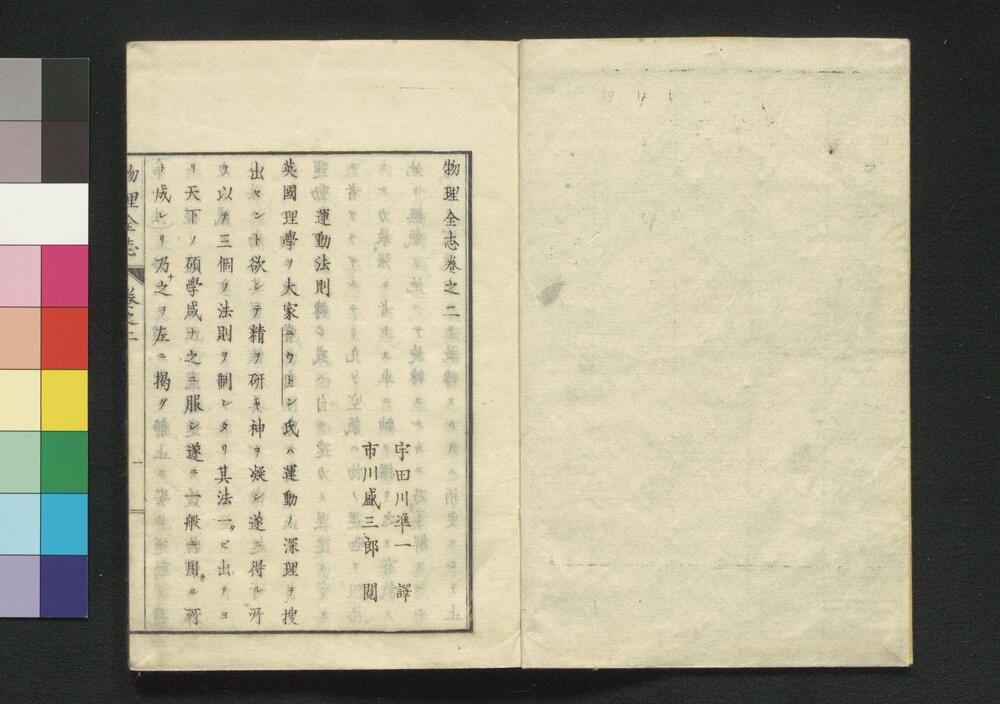 物理全志巻之二
宇田川準一 譯
市川盛三郎 閲
運動法則
英國理學ノ大家ニウトン氏ハ運動ノ深理ヲ搜
出セント欲シテ精ヲ研キ神ヲ凝シ遂ニ得ル所
ヲ以テ三個ノ法則ヲ制シタリ其法一タビ出テヨ
リ天下ノ碩學咸ナ之ニ服シ遂ニ一般ニ用ヰル所
ト成レリ乃チ之ヲ左ニ揭グ
物理全志 巻之二 一